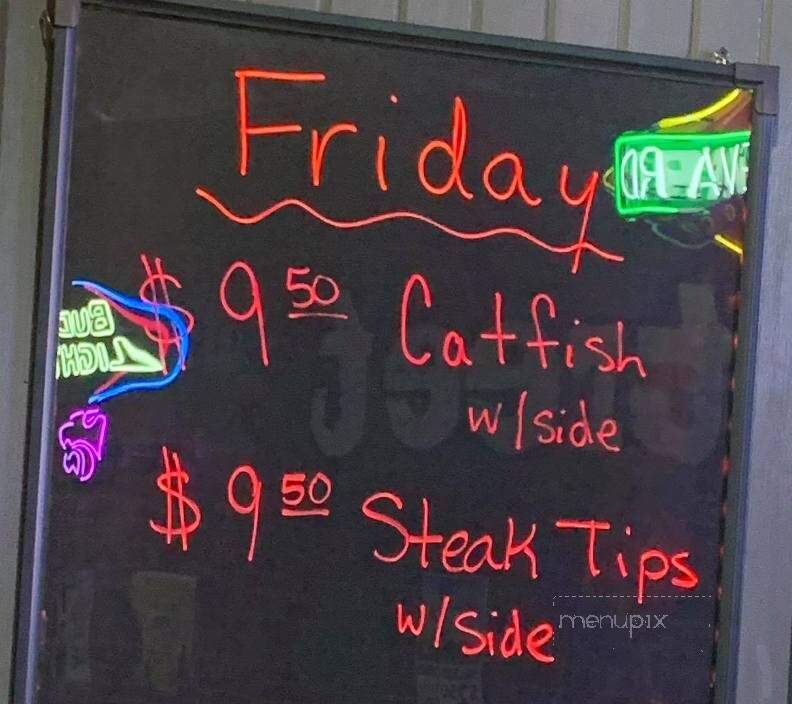 Friday
$9 50 Catfish
w/side
$9 50 Steak Tips
w/side
BUD
LIGHT
menupix